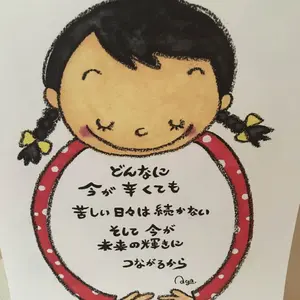 どんなに
今が辛くても
苦しい日々は続かない
そして今が
未来の輝きに
つながるから